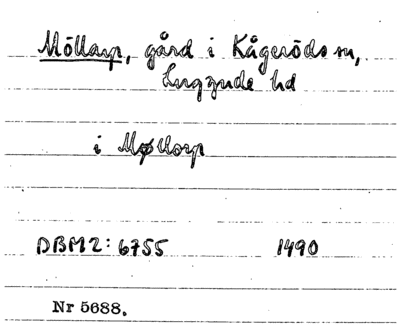 Möllarp, gård i Kågeröds sn,
Luggude hd
i Møllorp
DBM2: 6755 1490
Nr 5688.